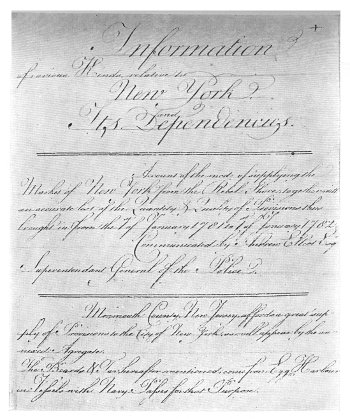 Information
of various Kinds, relative to
New York
and
Its Dependencies.
Account of the mode of supplying the
Market of New York from the Rebel Shore together with
an accurate list of the Quantity & Quality of Provisions thus
brought in from the 1st of January 1781 to 1st of January 1782
Communicated by Andrew Elliot Esq
Superintendant General of the Police
Monmouth County, New Jersey, affords a great sup
ply of Provisions to the City of New York as will appear by the
Agregate.
The Boards & Tar hereafter mentioned come from Egg Harbour
in Vessels with Navy Passes for that Purpose.